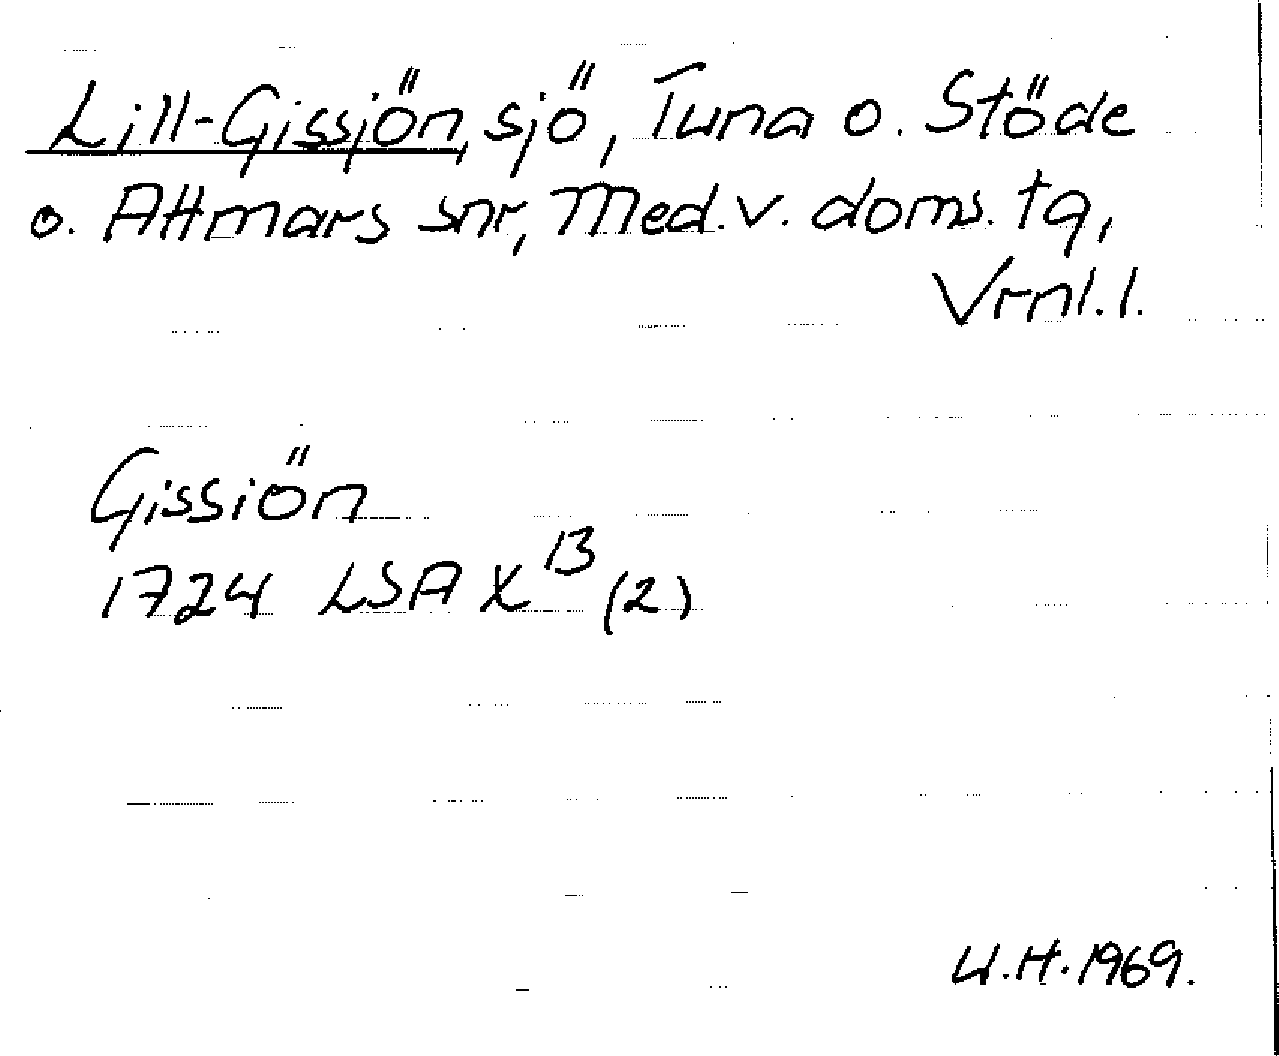 Lill-Gissjön, sjö, Tuna o. Stöde
o. Attmars snr, Med. v. doms. tg,
Vrnl. l.
Gissiön
1724 LSA X¹³ (2)
U.H. 1969.